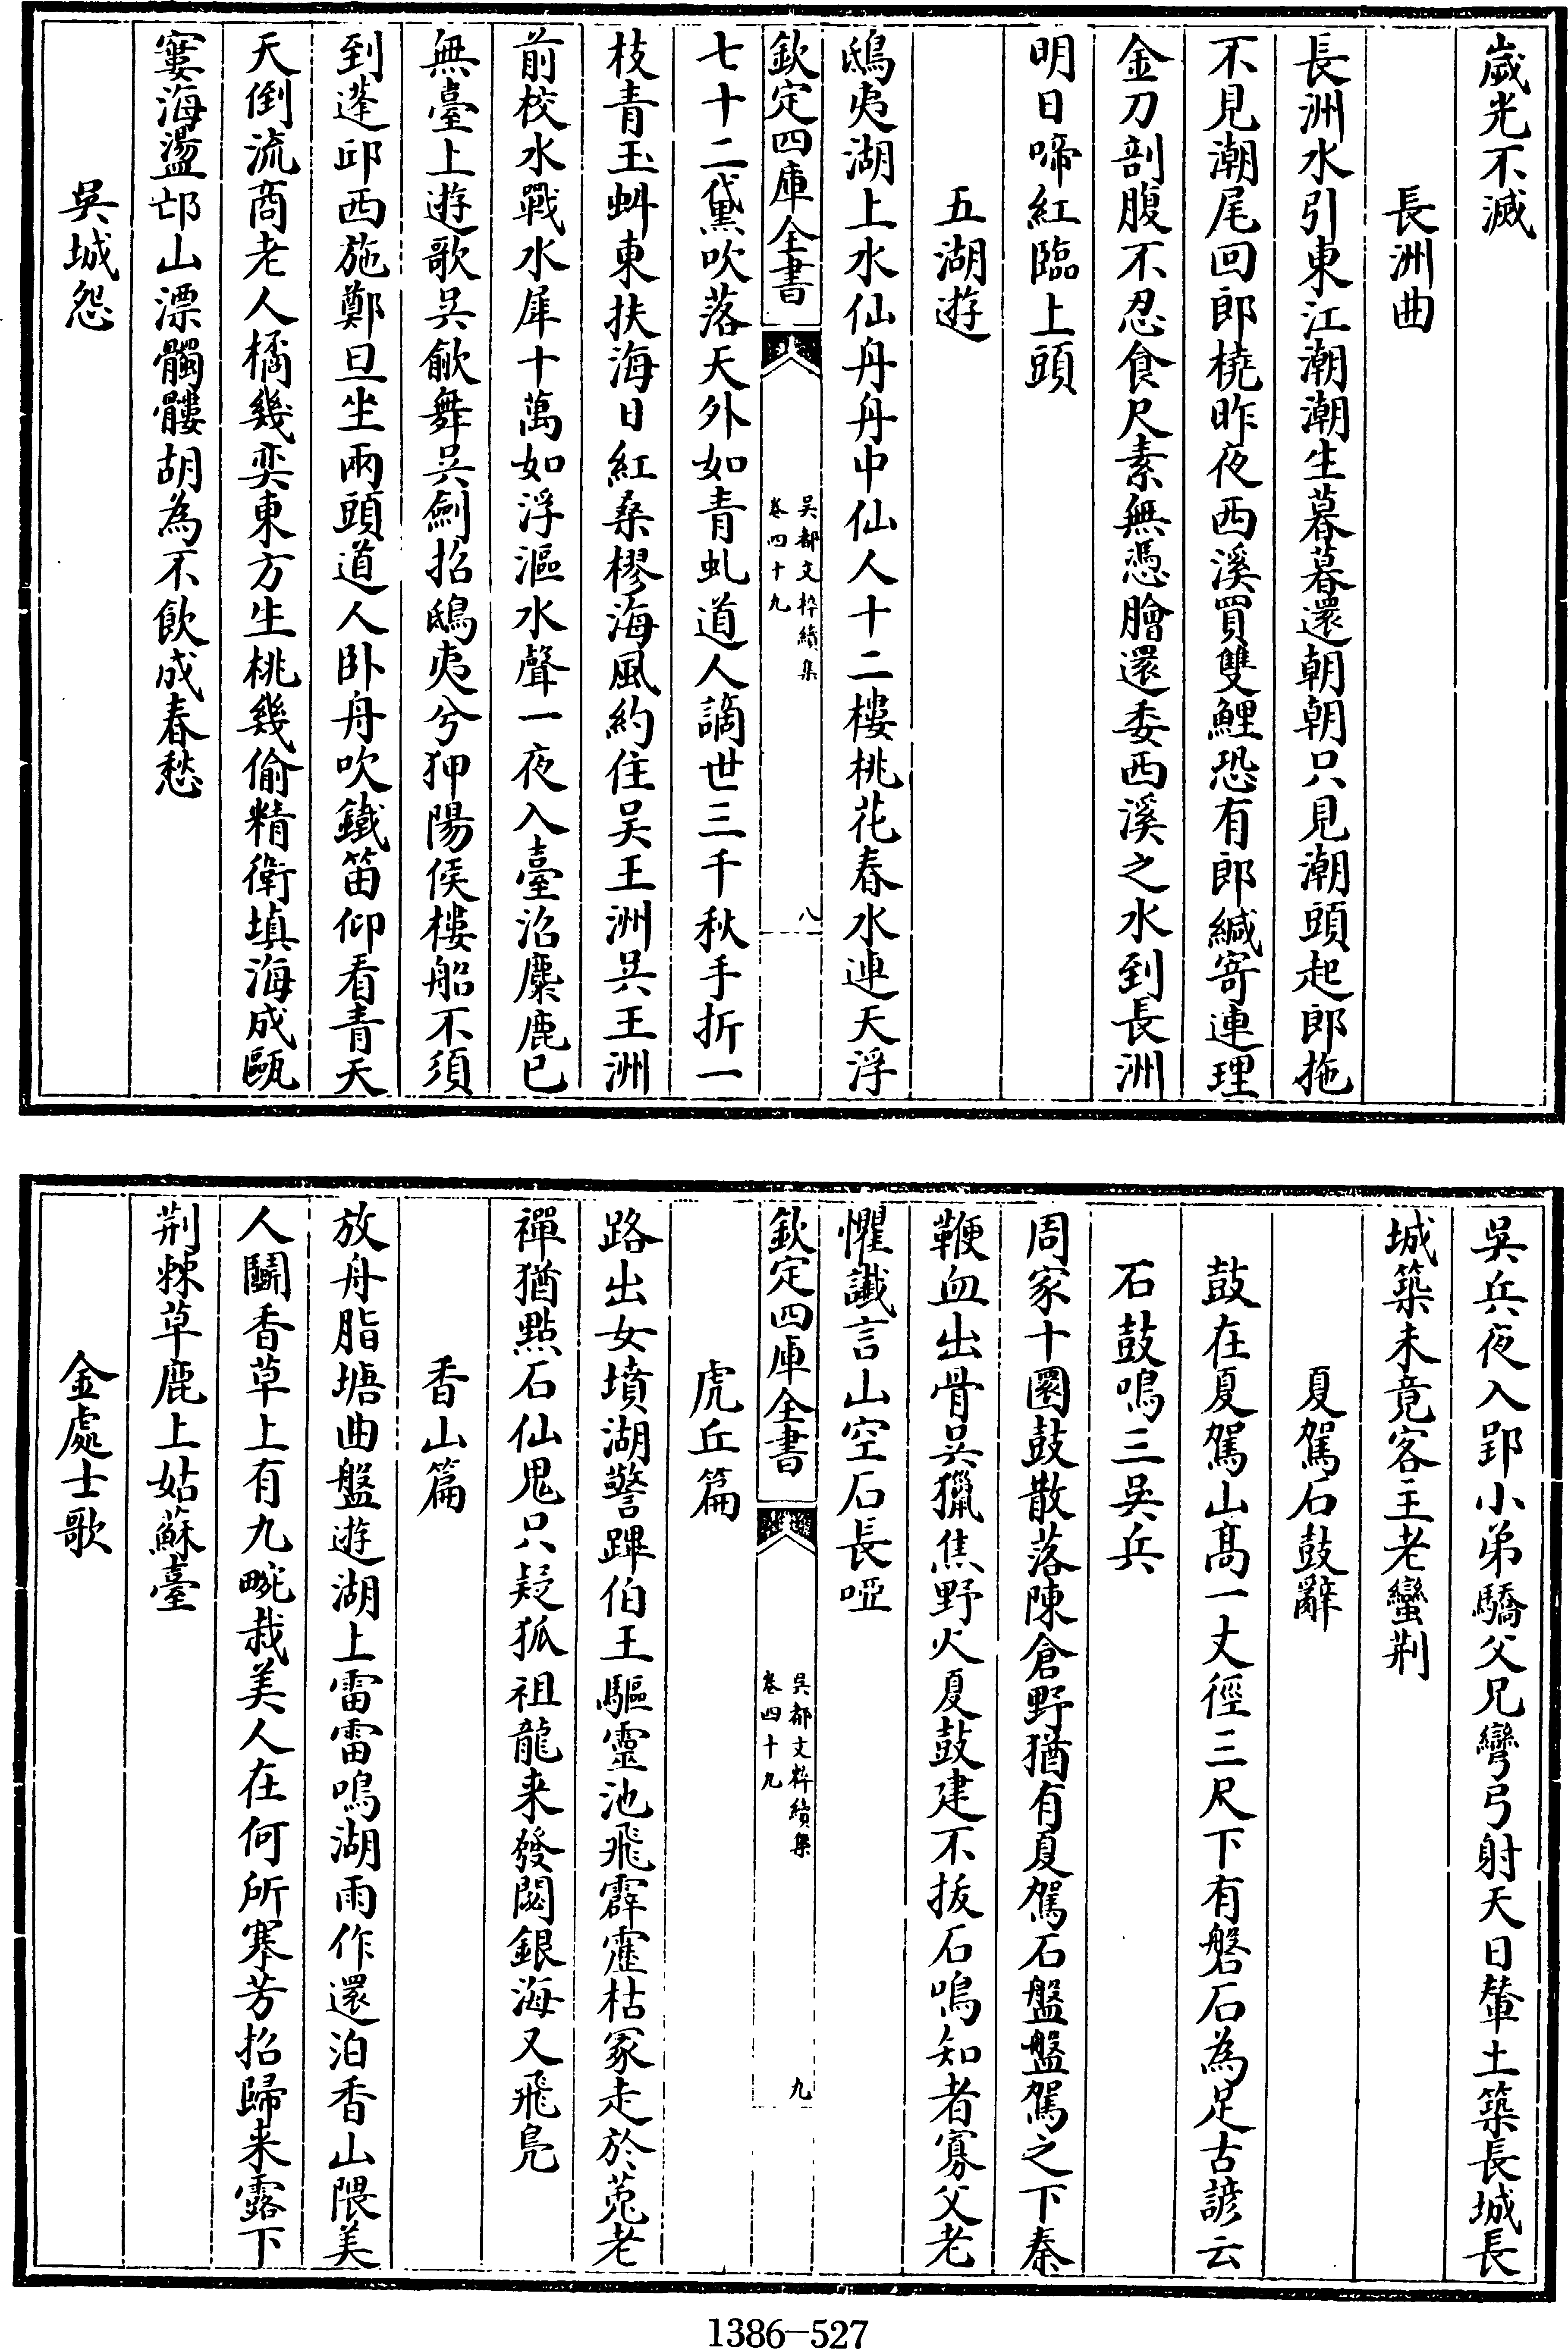 歲光不滅
長洲曲
長洲水引東江潮潮生暮暮還朝朝只見潮頭起郎拖
不見潮尾回郎橈昨夜西溪買雙鯉恐有郎緘寄連理
金刀剖腹不忍食尺素無憑膾還委西溪之水到長洲
明日啼紅臨上頭
五湖遊
鴟夷湖上水仙舟舟中仙人十二樓桃花春水連天浮
欽定四庫全書
吳都文粹續集
卷四十九
八
七十二黛吹落天外如青虬道人謫世三千秋手折一
枝青玉虯東扶海日紅桑樛海風約住吴王洲吳王洲
前校水戰水犀十萬如浮漚水聲一夜入臺沼麋鹿已
無臺上遊歌吳歈舞吳劍招鴟夷兮狎陽侯樓船不須
到蓬邱西施鄭旦坐兩頭道人卧舟吹鐵笛仰看青天
天倒流商老人橘幾奕東方生桃幾偷精衛塡海成甌
窶海盪邙山漂髑髏胡為不飲成春愁
吳城怨
吳兵夜入郢小弟驕父兄彎弓射天日輂土築長城長
城築未竟客王老蠻荆
夏駕石鼓辭
鼓在夏駕山髙一丈徑三尺下有磐石為足古諺云
石鼓鳴三吳兵
周家十圜鼓散落陳倉野猶有夏駕石盤盤駕之下秦
鞭血出骨吳獵焦野火夏鼓建不拔石鳴知者寡父老
懼讖言山空石長啞
欽定四庫全書
吳都文粹續集
卷四十九
九
虎丘篇
路出女墳湖警蹕伯王驅靈池飛霹靂枯冢走於菟老
禪猶㸃石仙鬼只疑狐祖龍来發闕銀海又飛鳬
香山篇
放舟脂塘曲盤遊湖上雷雷鳴湖雨作還泊香山隈美
人鬭香草上有九畹栽美人在何所搴芳招歸来露下
荆棘草鹿上姑蘇臺
金處士歌
1386-527